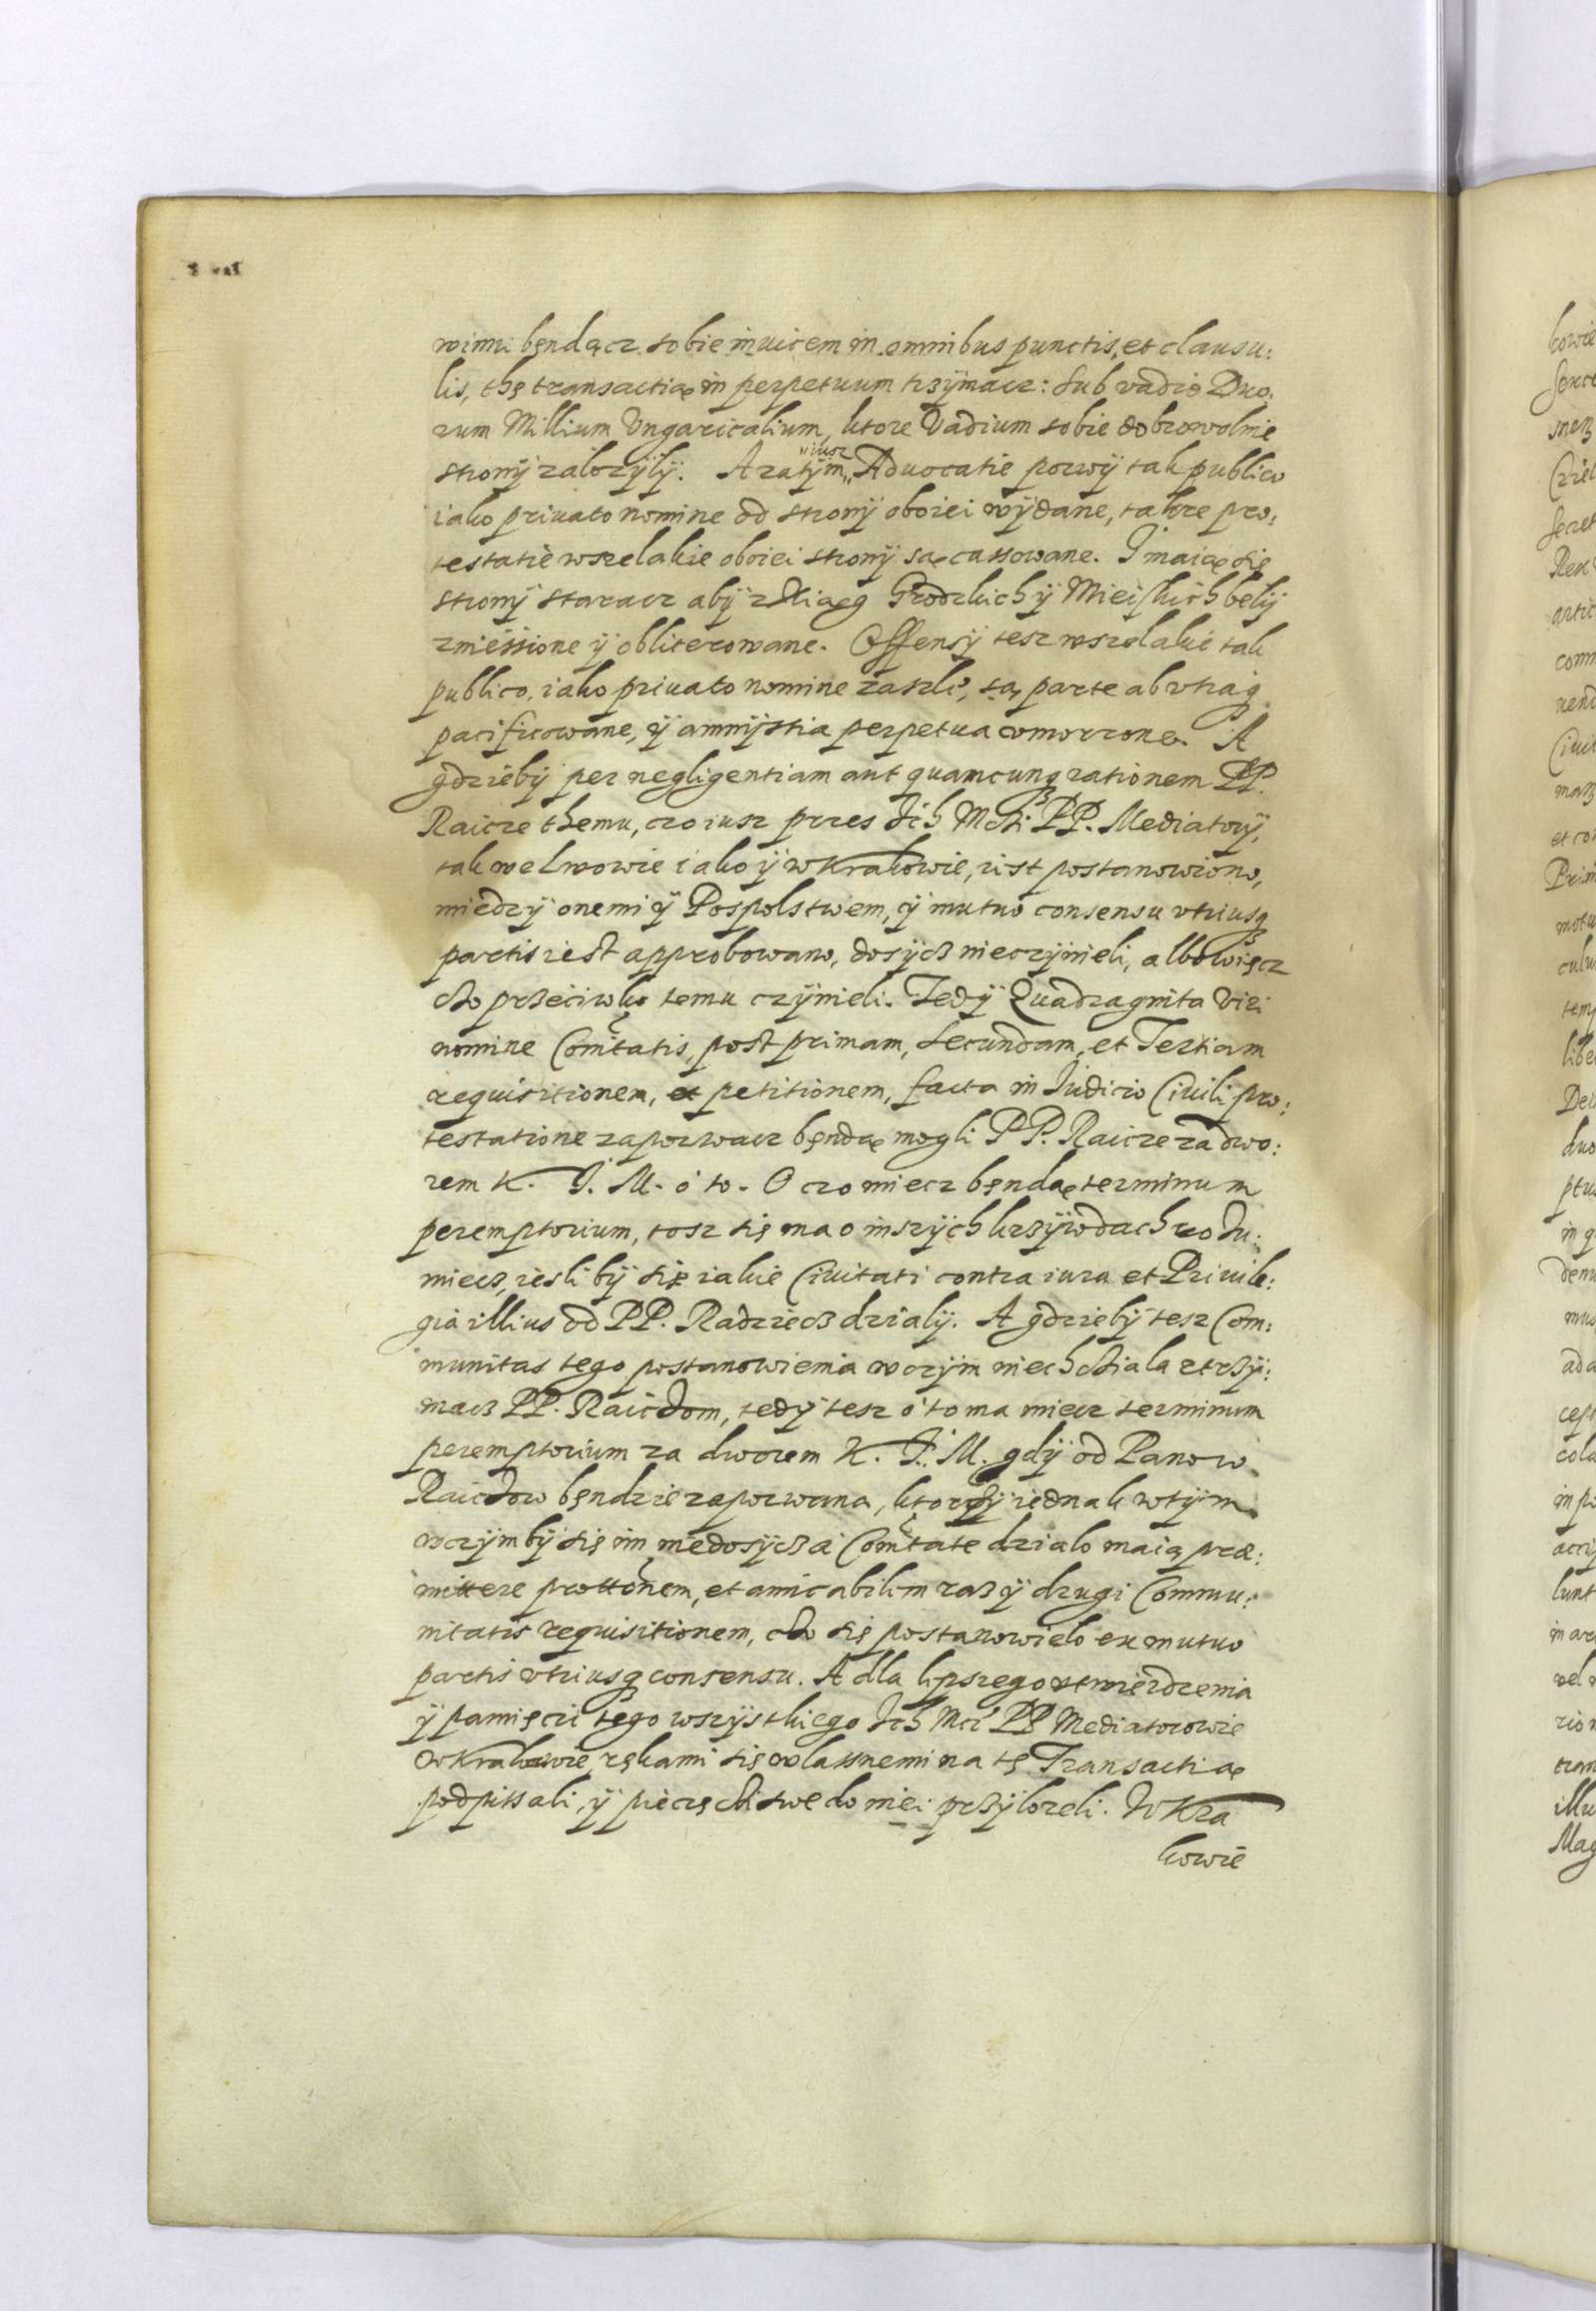 winni bęndącz sobie inuicem in omnibus punctis, et clausu:
lis, thę transactią in perpetuum trzÿmacz: Sub vadio Duo:
rum Millium Vngaricalium, ktore Vadium sobie dobrowolnie
stronÿ zalozÿlÿ. A zatÿm Aduocatie pozwÿ tak publico
iako priuato nomine od stronÿ oboiei wÿdane, takze pro:
testatie wszelakie oboiei stronÿ są cassowane. I maią się
stronÿ staracz abÿ z Xiąg Grodzkich ÿ Mieiskich belÿ
zniessione ÿ obliterowane. Offensÿ tesz wszelakie tak
publico, iako priuato nomine zaszle, są parte ab vtraq
pacificowane, ÿ amnÿstia perpetua vmorzone. A
gdziebÿ per negligentiam aut quamcunq rationem PP.
Raicze themu, czo iusz przes Ich Mczi PP. Mediatorÿ,
tak we Lwowie iako ÿ w Krakowie, iest postanowiono,
miedzÿ onemi ÿ Pospolstwem, ÿ mutuo consensu vtriusq
partis iest approbowano, dosÿcz nieczÿnieli, albo więcz
czo przeciwko temu czÿnieli. Tedÿ Quadraginta Viri
nomine Comtatis, post primam, secundam, et Tertiam
requisitionem, et petitionem, facta in Iudicio Ciuili pro:
testatione zapozwacz będą mogli PP. Raicze za dwo:
rem K. I. M. o to. O czo miecz bęndą terminum
peremptorium, tosz się ma o inszÿch krzÿwdach rozu:
miecz, iesli bÿ się iakie Ciuitati contra iura et Priuile:
gia illius od PP. Radziecz dzialÿ. A gdziebÿ tesz Com:
munitas tego postanowienia w czÿm niechcziala ztrzÿ:
macz PP. Raiczom, tedÿ tesz o to ma miecz terminum
peremptorium za dworem K. I. M. gdÿ od Panow
Raiczow bęndzie zapozwana, ktorzÿ iednak w tÿm
w czÿm bÿ się im niedosÿcz a Comtate dzialo maią præ:
mittere prottonem, et amicabilem raz ÿ drugi Commu:
nitatis requisitionem, czo się postanowielo ex mutuo
partis vtriusq consensu. A dla lepszego vtwierdzenia
ÿ pamięczi tego wszÿstkiego Ich Mcz PP Mediatorowie
w Krakowie, rękami się wlassnemi na tę Transactią
podpissali, ÿ pieczęczi swe do niei przÿlozeli. W Kra
kowie